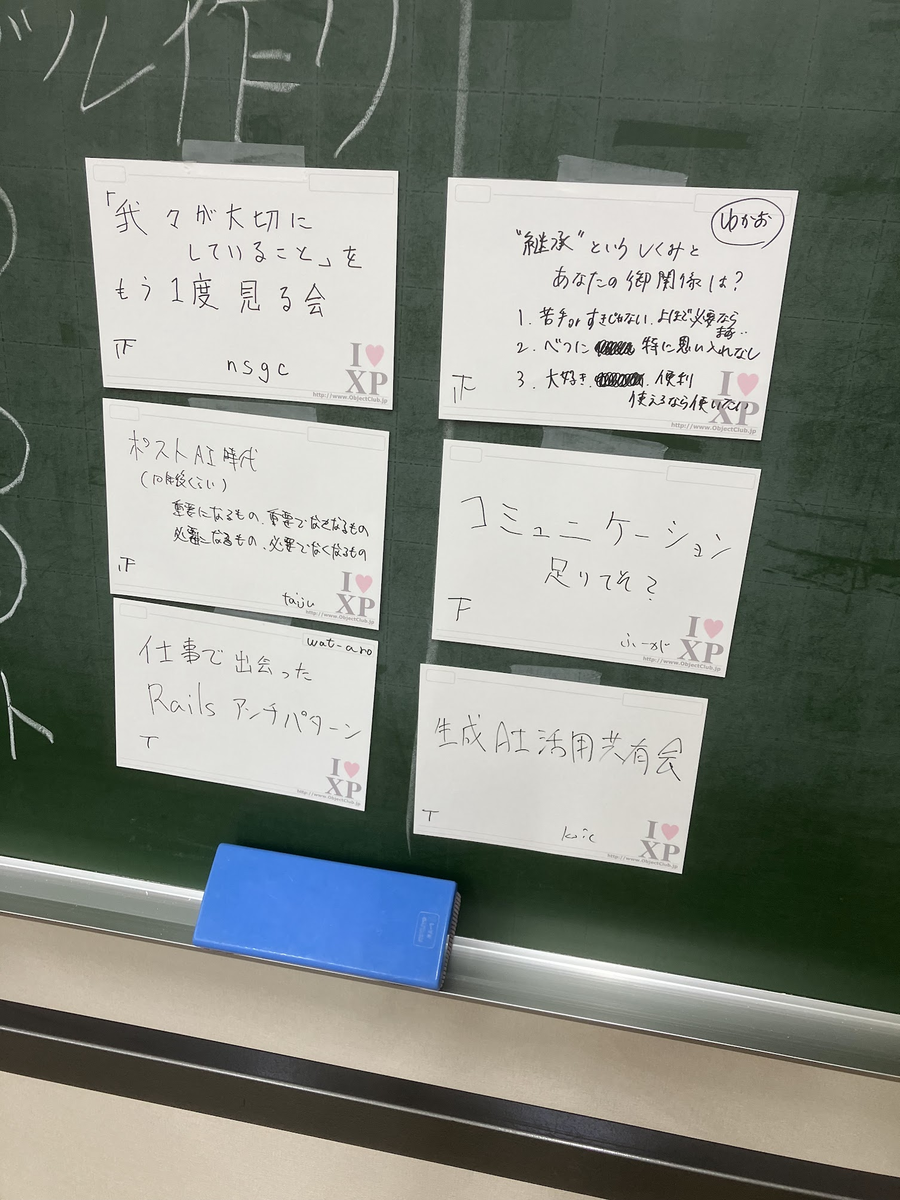 ル作り
「我々が大切に
していること」を
もう1度見る会
nsgc
I♥
XP
http://www.ObjectClub.jp
ゆかお
"継承"というしくみと
あなたの御関係は?
1. 苦手orすきじゃない、よほど必要なら
2. べつに 特に思い入れなし
3. 大好き、便利
使えるなら使いたい
I♥
XP
http://www.ObjectClub.jp
ポストAI時代
(10年後くらい)
重要になるもの、重要でなくなるもの
必要になるもの、必要でなくなるもの
taiju
I♥
XP
http://www.ObjectClub.jp
コミュニケーション
足りてそ?
ふーが
I♥
XP
http://www.ObjectClub.jp
wat-aro
仕事で出会った
Rails アンチパターン
T
I♥
XP
http://www.ObjectClub.jp
生成AI活用共有会
T
koic
I♥
XP
http://www.ObjectClub.jp